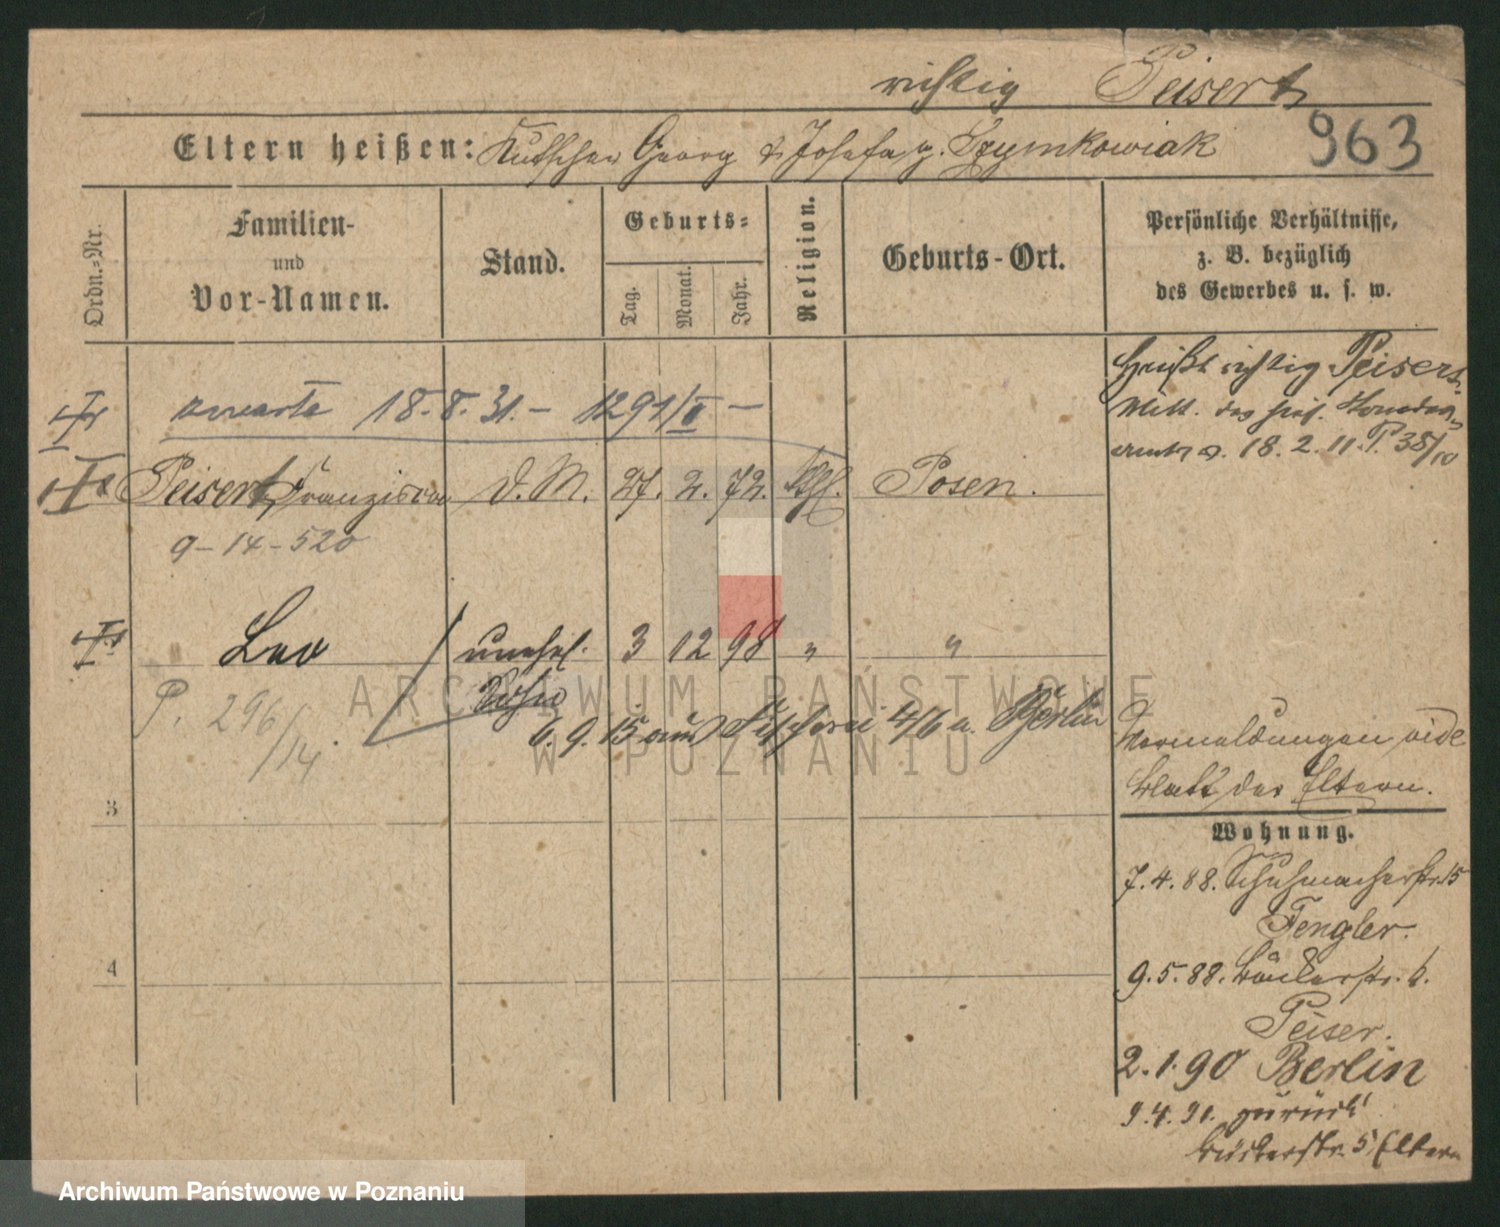 richtig Peisert
963
Eltern heißen: Kutscher Georg & Josefa g. Szymkowiak
Ordn.-Nr.
Familien-
und
Vor-Namen.
Stand.
Geburts-
Tag.
Monat.
Jahr.
Religion.
Geburts-Ort.
Persönliche Verhältnisse,
z. B. bezüglich
des Gewerbes u. s. w.
Heißt richtig Peisert
Mitt. des
18. 2. 11. P. 38/10
18. 8. 31. - 1291/II -
Peisert, Franziska d. M. 27. 2. 72. kth. Posen.
9-14-520
Leo unehel. 3 12 98 " "
Sohn
P. 296/14
6. 9. 15 aus Fischerei 4/6 n. Berlin
Vermeldungen vide
Blatt der Eltern.
3
4
Wohnung.
7. 4. 88. Schuhmacherstr. 15
Fengler.
9. 5. 88. 6.
Peiser.
2. 1. 90 Berlin
9. 4. 91. zurück
5 Eltern
ARCHIWUM PAŃSTWOWE
W POZNANIU
Archiwum Państwowe w Poznaniu